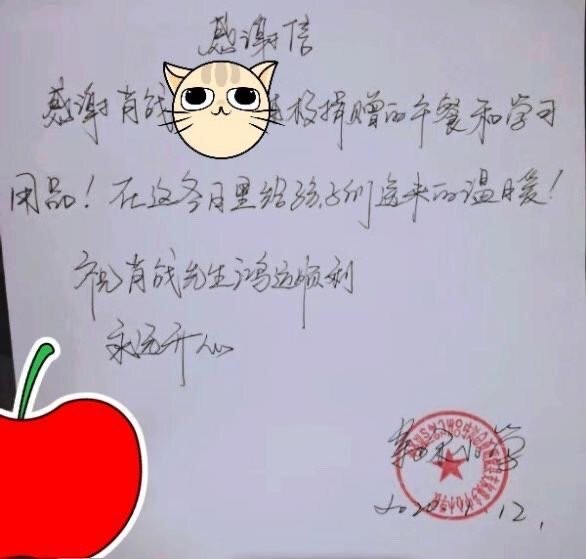 感谢信
感谢肖战 校捐赠的午餐和学习
用品！在这冬日里给孩子们送来的温暖！
祝肖战先生鸿运顺利
永远开心
小学
2020 12.